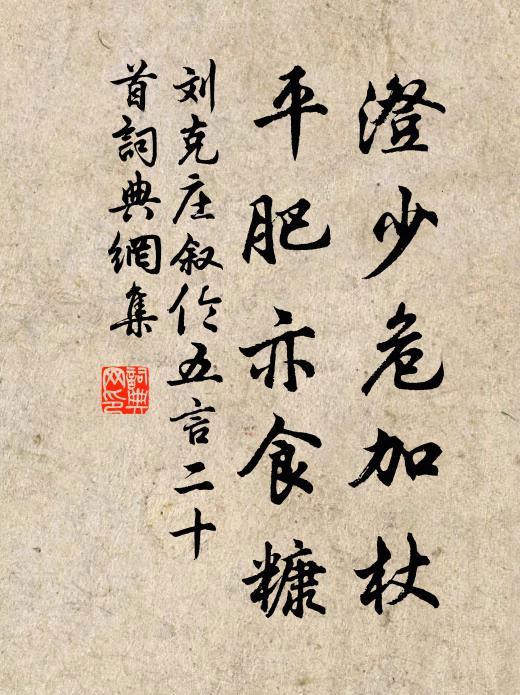 澄少危加杖
平肥亦食糠
刘克庄叙伦五言二十
首詞典網集
詞典網印